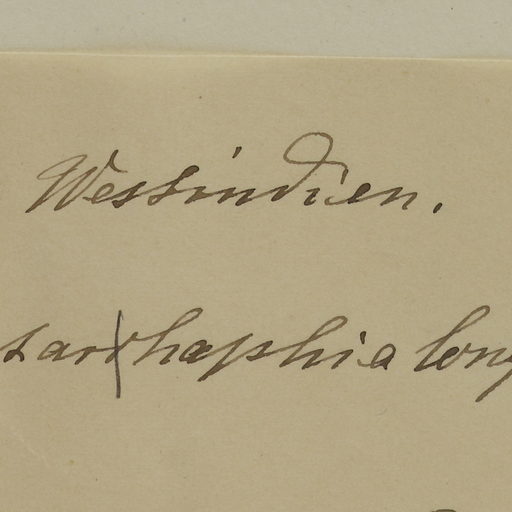 Westindien.
tarrhaphia long